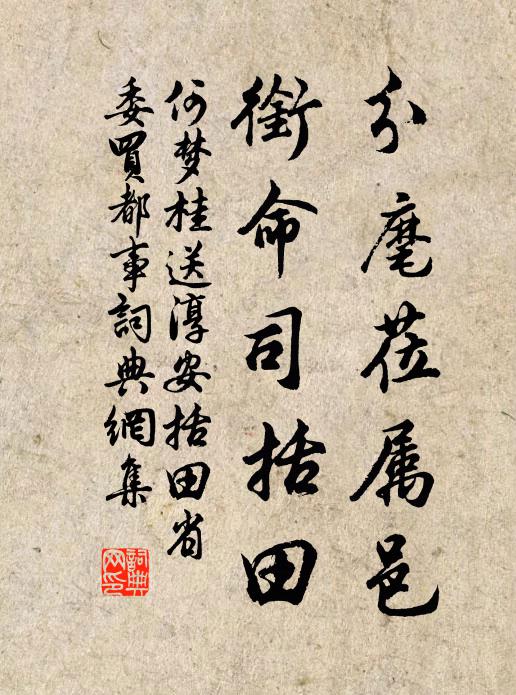 分麾莅属邑
銜命司括田
何梦桂送淳安括田省
委買都事詞典網集
詞典网印